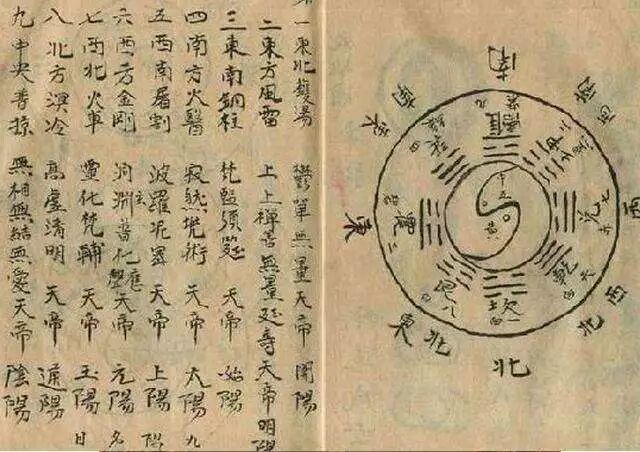 一東北鑊湯 鬱單無量天帝 開陽
二東方風雷 上上禪善無量延壽天帝 明陽
三東南銅柱 梵監須延天帝 始陽
四南方火醫 寂然兜術天帝 太陽 九
五西南屠割 波羅尼蜜天帝 上陽
六西方金剛 洞淵玄普化應聲天帝 元陽 名
七西北火車 靈化梵輔天帝 玉陽 日
八北方溟冷 高虛清明天帝 通陽
九中央普掠 無相無結無愛天帝 陰陽
南
西南
西
西北
北
東北
東
東南
離 九
兌 七
乾 六
坎 一
艮 八
震 三
四